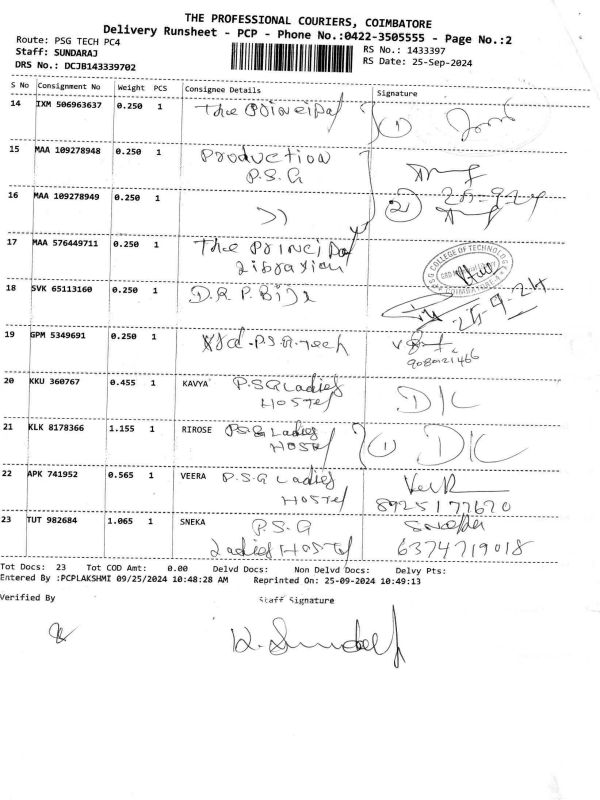 THE PROFESSIONAL COURIERS, COIMBATORE
Delivery Runsheet - PCP - Phone No.:0422-3505555 - Page No.:2
Route: PSG TECH PC4
RS No.: 1433397
Staff: SUNDARAJ
RS Date: 25-Sep-2024
DRS No.: DCJB143339702
S No Consignment No Weight PCS Consignee Details Signature
14 IXM 506963637 0.250 1 The Principal 1
15 MAA 109278948 0.250 1 Production
P.S.G
16 MAA 109278949 0.250 1 2 25-9-24
17 MAA 576449711 0.250 1 The Principal
PSG COLLEGE OF TECHNOLOGY
COIMBATORE
18 SVK 65113160 0.250 1 D.R P.
25-9-24
19 GPM 5349691 0.250 1 P.S.G.Tech
20 KKU 360767 0.455 1 KAVYA P.S.G Ladies
Hostel
D/C
21 KLK 8178366 1.155 1 RIROSE P.S.G Ladies
Hostel
1 D/C
22 APK 741952 0.565 1 VEERA P.S.G Ladies
Hostel
8925177620
23 TUT 982684 1.065 1 SNEKA P.S.G Sneka
Ladies Hostel 6374719018
Tot Docs: 23 Tot COD Amt: 0.00 Delvd Docs: Non Delvd Docs: Delvy Pts:
Entered By :PCPLAKSHMI 09/25/2024 10:48:28 AM Reprinted On: 25-09-2024 10:49:13
Verified By Staff Signature